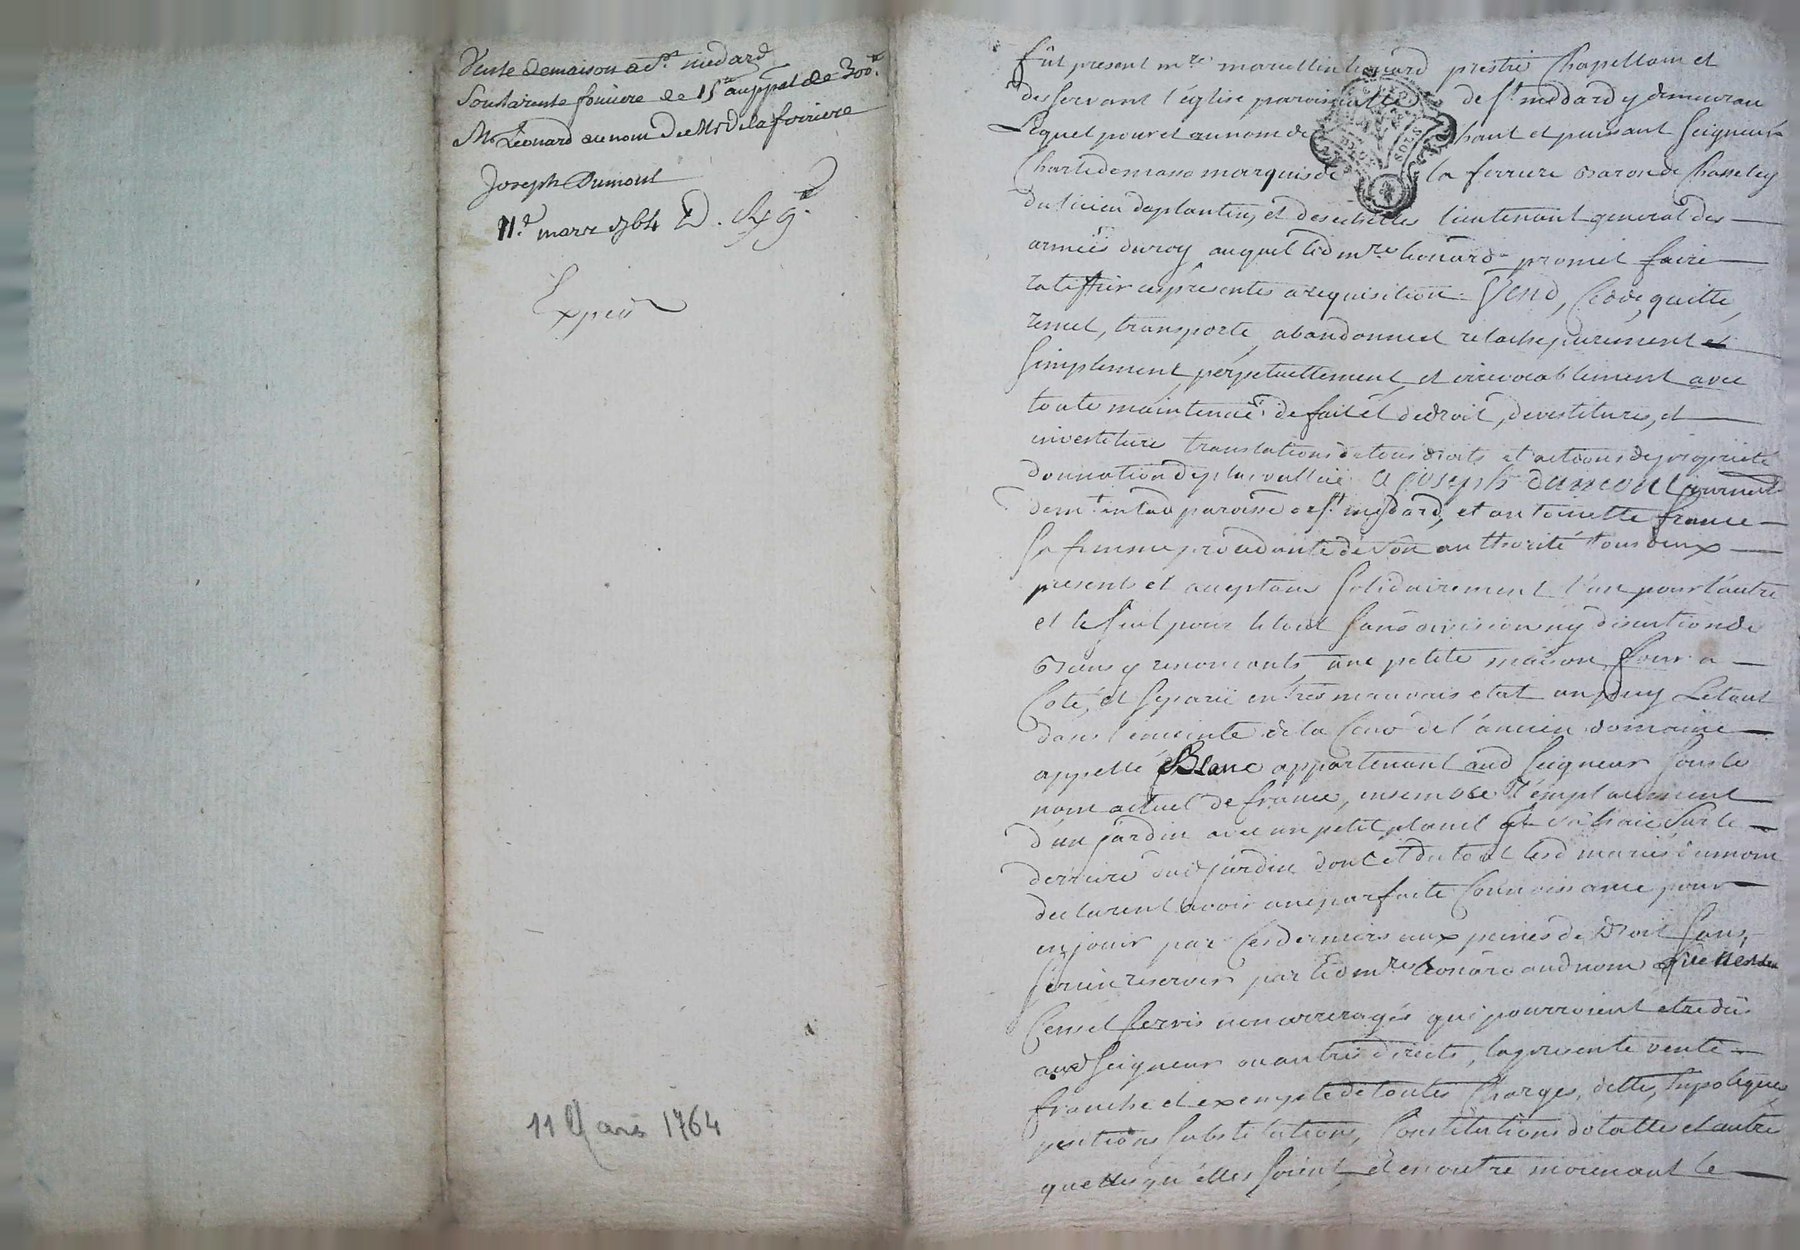 Vente de maison a St medard
Sous la rente fonciere de 15tt au ppal de 300tt.
Mr Léonard au nom de Mr de la ferriere
Joseph Dumont
11e mars 1764
Expedié
11 Mars 1764
fût present mre marcellin léonard prestre Chapellain et
desservant l'église parroissialle de st medard y demeurant
Lequel pour et au nom de haut et puissant Seigneur
Charle de masso marquis de la ferriere Baron de Chasseley
du lieutenant general des
armées du roy auquel led mre léonard promet faire
ratiffier ces presentes a requisition. Vend, Cede, quitte,
remet, transporte, abandonne et relache purement et
simplement, perpetuellement, et irrevocablement avec
toute maintenue de fait et de droit, devestiture, et
investiture translations de tous droits et actions de proprieté
donnation de plus vallüe. a joseph dumont journalier
demt en lad paroisse de st medard, et antoinette france
sa femme procedante de son authorité tous deux
presents et acceptans solidairement l'un pour l'autre
et le seul pour le tout sans division ny discution de
Biens y renoncants une petite maison, four a
Coté, et separé en tres mauvais etat un puy Le tout
dans l'enceinte de la Cour de l'ancien domaine
appellé Blanc appartenant aud Seigneur sous le
nom actuel de france, ensemble l'emplacement
d'un jardin avec un petit et sa haie sur le
derriere dud jardin dont et du tout lesd mariés dumont
declarent avoir une parfaite Connoissance pour
en jouir par Ces derniers aux peines de Droit sans
s'en rien reserver par led mre léonard aud nom
Cens et servis non arreragés qui pourroient etre dus
aud Seigneur ou autres directs, la presente vente
franche et exempte de toutes Charges, dettes, hypoteques
pentions substitutions, Constitutions dotalles et autres
quelles qu'elles soient, et en outre moienant le